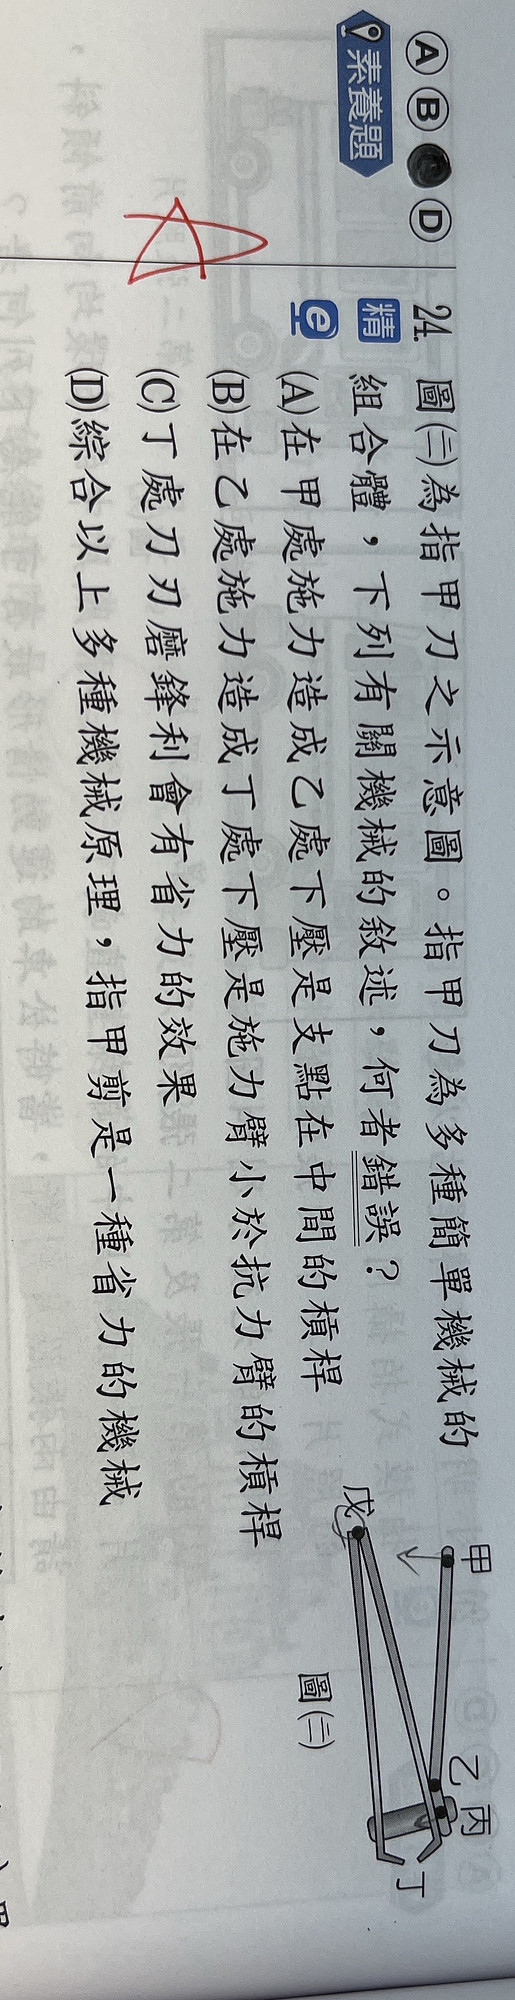 Ⓐ Ⓑ Ⓓ
素養題
24. 圖(三)為指甲刀之示意圖。指甲刀為多種簡單機械的
精 組合體，下列有關機械的敘述，何者錯誤？
e (A)在甲處施力造成乙處下壓是支點在中間的槓桿
(B)在乙處施力造成丁處下壓是施力臂小於抗力臂的槓桿
(C)丁處刀刃磨鋒利會有省力的效果
(D)綜合以上多種機械原理，指甲剪是一種省力的機械
甲
乙
丙
丁
戊
圖(三)